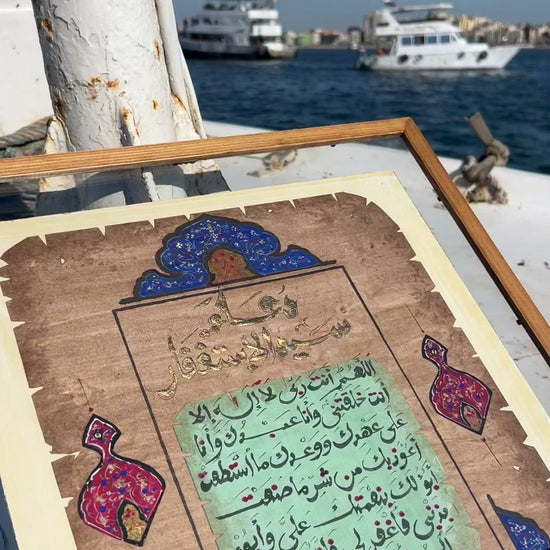 دعاء
سيد الإستغفار
اللهم أنت ربي لا إله إلا
أنت خلقتني وأنا عبدك وأنا
على عهدك ووعدك ما استطعت
أعوذ بك من شر ما صنعت
أبوء لك بنعمتك علي وأبوء
بذنبي فاغفر لي فإنه